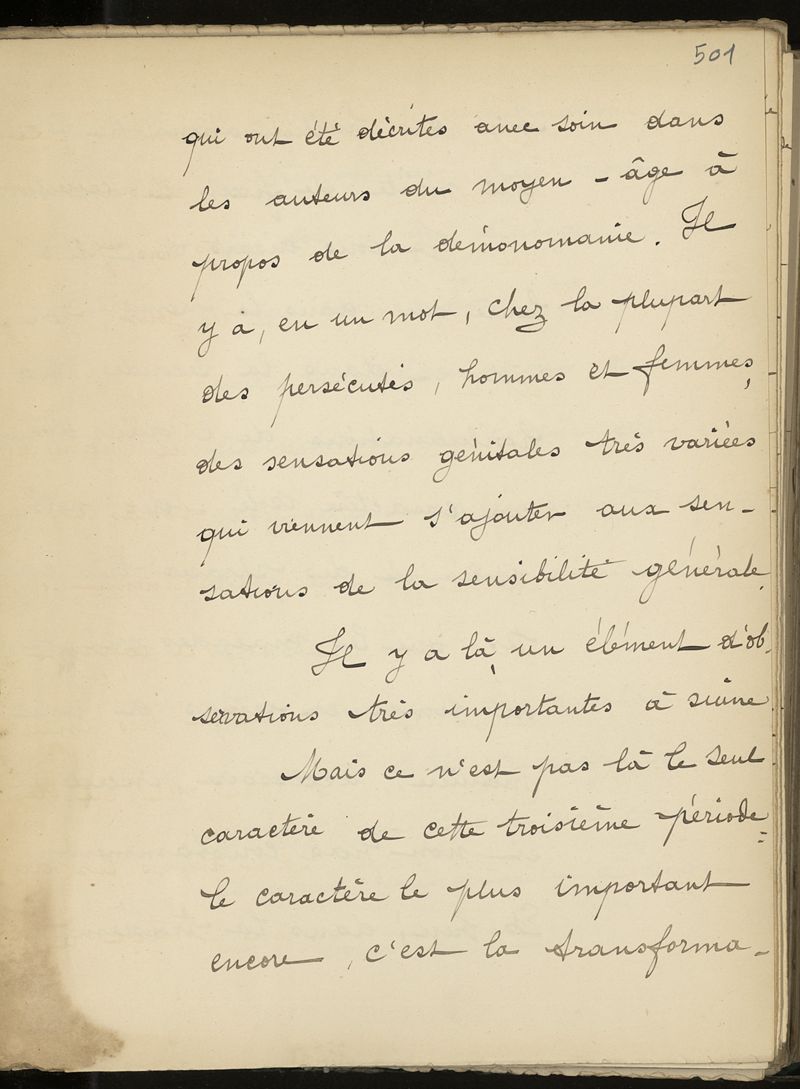 501
qui ont été décrites avec soin dans
les auteurs du moyen-âge à
propos de la démonomanie. Il
y a, en un mot, chez la plupart
des persécutés, hommes et femmes,
des sensations génitales très variées
qui viennent s'ajouter aux sen-
sations de la sensibilité générale.
Il y a là, un élément d'ob-
servations très importantes à suivre
Mais ce n'est pas là le seul
caractère de cette troisième période =
le caractère le plus important
encore, c'est la transforma-